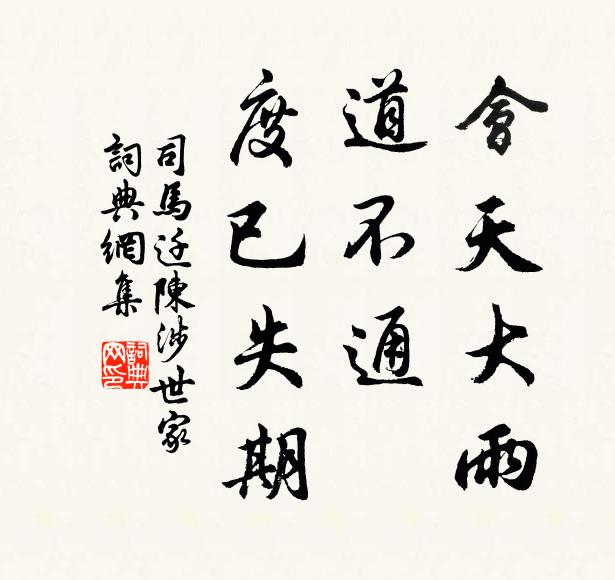 會天大雨
道不通
度已失期
司馬迁陳涉世家
詞典網集
詞典
网印